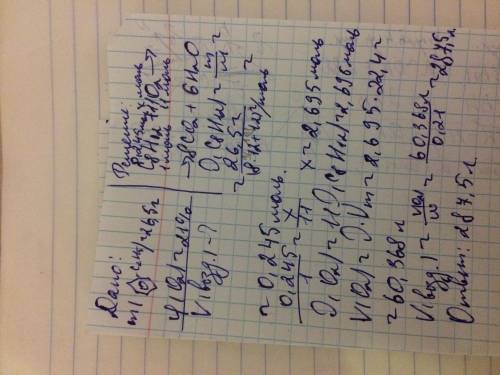 Дано:
m(C₂H₅)=26,5г
φ(O₂)=21%
V(возд.)-?
Решение:
0,245моль x моль
C₈H₁₀+11O₂→
1 моль 11 моль
→8CO₂+6H₂O
ν(C₈H₁₀)=m/M=
=26,5г/
=0,245моль.
0,245/1=x/11 x=2,695моль
ν(O₂)=11ν(C₈H₁₀)=2,695моль
V(O₂)=ν·Vm=2,695·22,4=
=60,368л
V(возд.)=60,368л/0,21=287,5л
Ответ: 287,5л